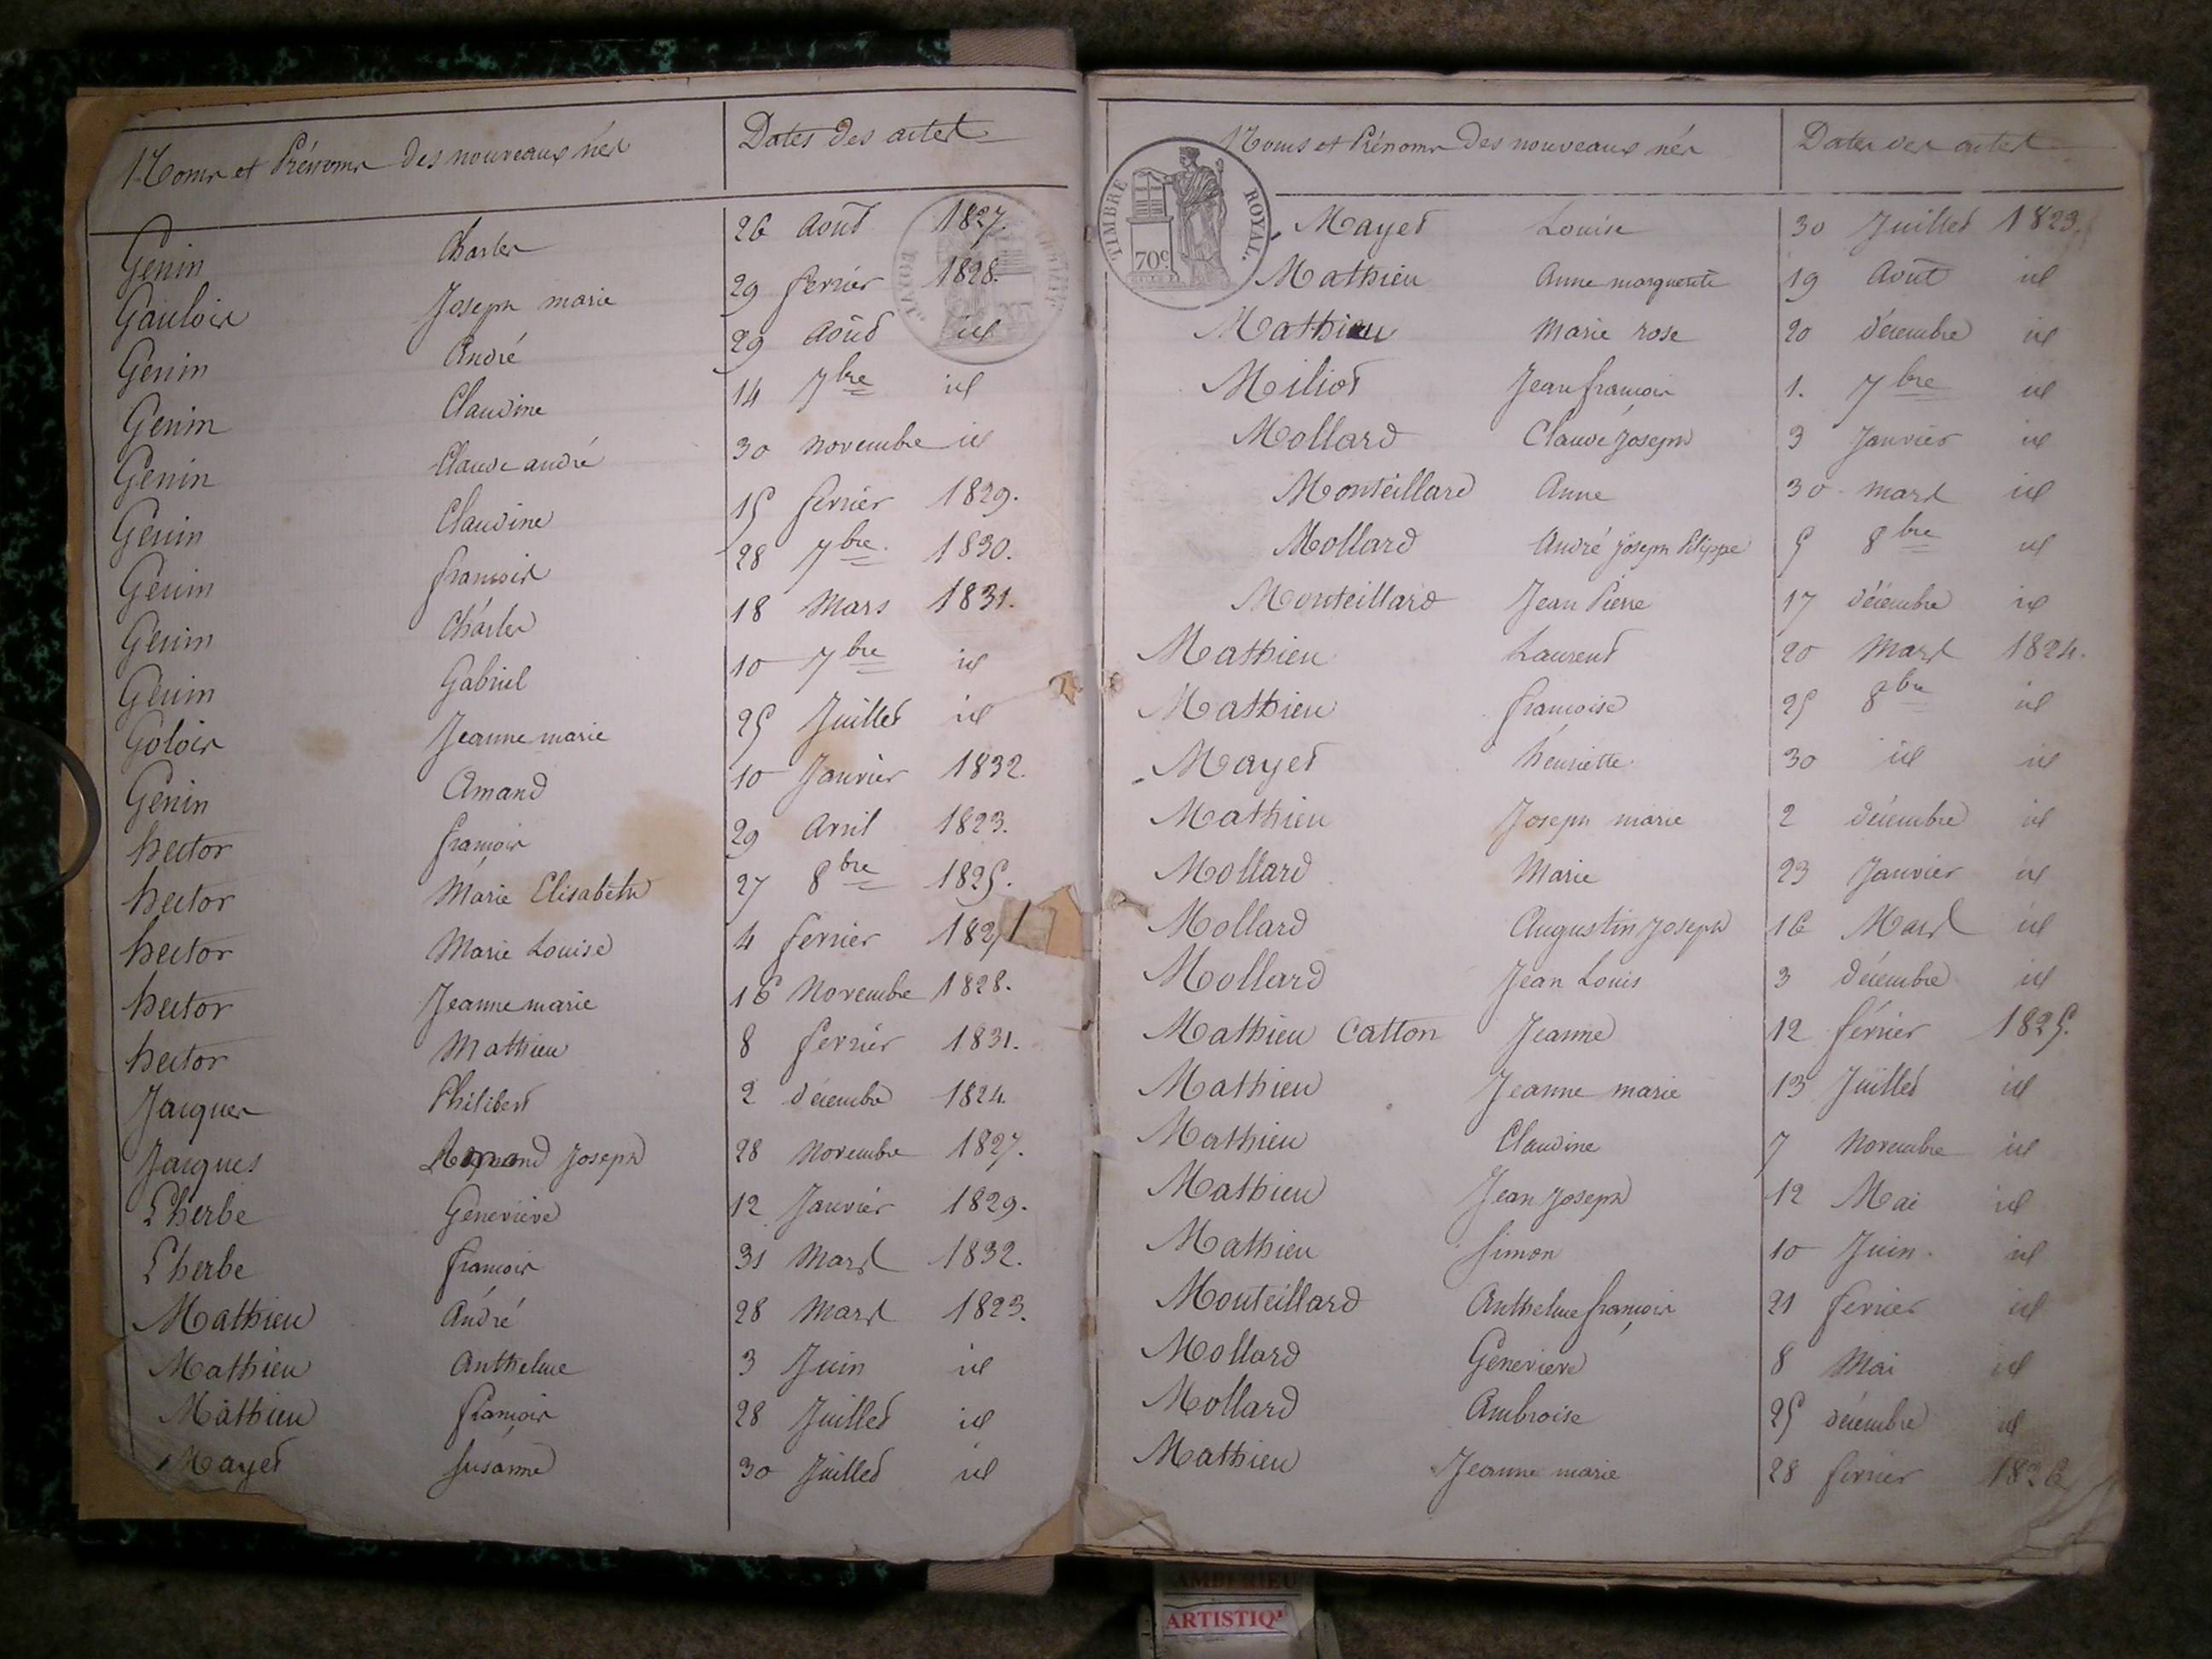 Noms et Prénoms des nouveaux nés Dates des actes
Genin Charles 26 Août 1827.
Gaulois Joseph marie 29 fevrier 1828.
Genin André 29 Août id
Genin Claudine 14 7bre id
Genin Claude andré 30 novembre id
Genin Claudine 15 fevrier 1829.
Genin francois 28 7bre 1830.
Genin Charles 18 Mars 1831.
Genin Gabriel 10 7bre id
Golois Jeanne marie 25 Juillet id
Genin Amand 10 Janvier 1832.
hector françois 29 Avril 1823.
hector Marie Elisabeth 27 8bre 1825.
hector Marie Louise 4 fevrier 182
hector Jeanne marie 16 Novembre 1828.
hector Mathieu 8 fevrier 1831.
Jacques Philibert 2 décembre 1824
Jacques Joseph 28 Novembre 1827.
Lherbe Genevieve 12 Janvier 1829.
Lherbe françois 31 Mars 1832.
Mathieu André 28 Mars 1823.
Mathieu Anthelme 3 Juin id
Mathieu françois 28 Juillet id
Mayet Susanne 30 Juillet id
Noms et Prénoms des nouveaux nés Dates des actes
TIMBRE ROYAL.
70c
Mayet Louise 30 Juillet 1823.
Mathieu Anne marguerite 19 Août id
Mathieu Marie rose 20 décembre id
Miliot Jean francois 1. 7bre id
Mollard Claude Joseph 3 Janvier id
Monteillard Anne 30 mars id
Mollard André joseph Philippe 5 8bre id
Monteillard Jean Pierre 17 décembre id
Mathieu Laurent 20 Mars 1824.
Mathieu francoise 25 8bre id
Mayet henriette 30 id id
Mathieu Joseph marie 2 décembre id
Mollard Marie 23 Janvier id
Mollard Augustin Joseph 16 Mars id
Mollard Jean Louis 3 décembre id
Mathieu Catton Jeanne 12 février 1825.
Mathieu Jeanne marie 13 Juillet id
Mathieu Claudine 7 Novembre id
Mathieu Jean Joseph 12 Mai id
Mathieu Simon 10 Juin id
Monteillard Anthelme françois 21 fevrier id
Mollard Genevieve 8 Mai id
Mollard Ambroise 25 décembre id
Mathieu Jeanne marie 28 fevrier 1826
AMBERIEU
ARTISTIQ